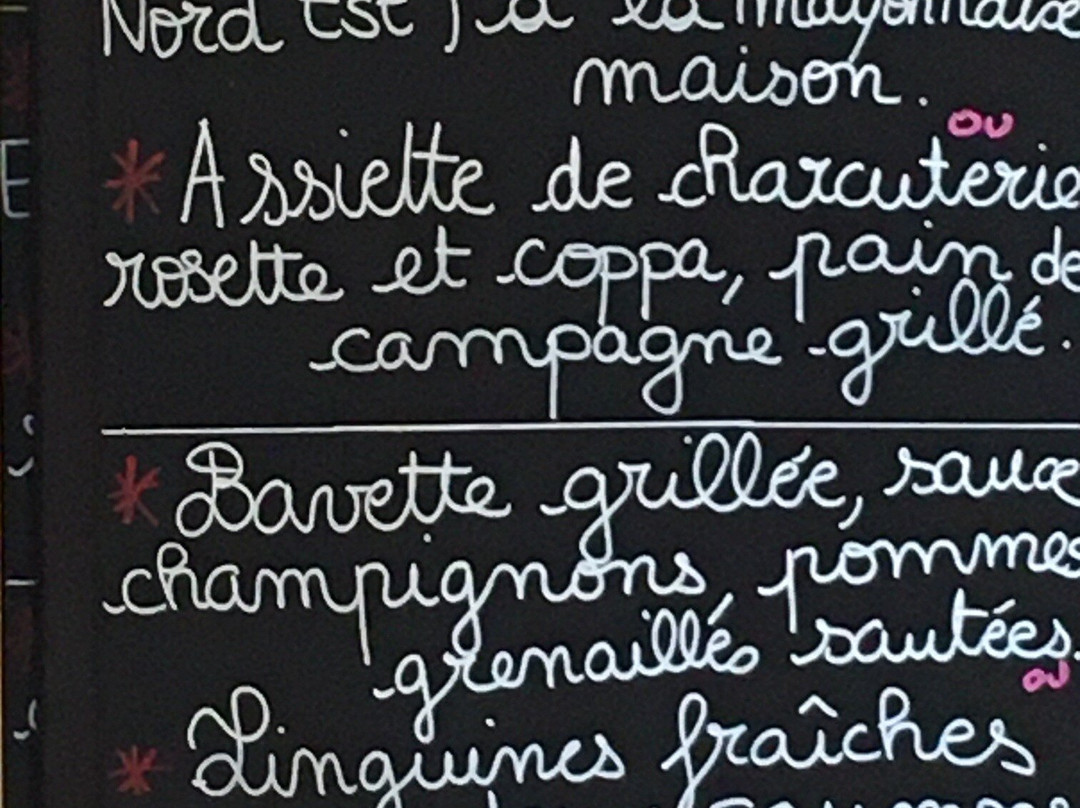 Nord Est), à la mayonnaise
maison.
ou
* Assiette de charcuterie
rosette et coppa, pain de
campagne grillé.
* Bavette grillée, sauce
champignons, pommes
grenaillés sautées.
ou
* Linguines fraîches